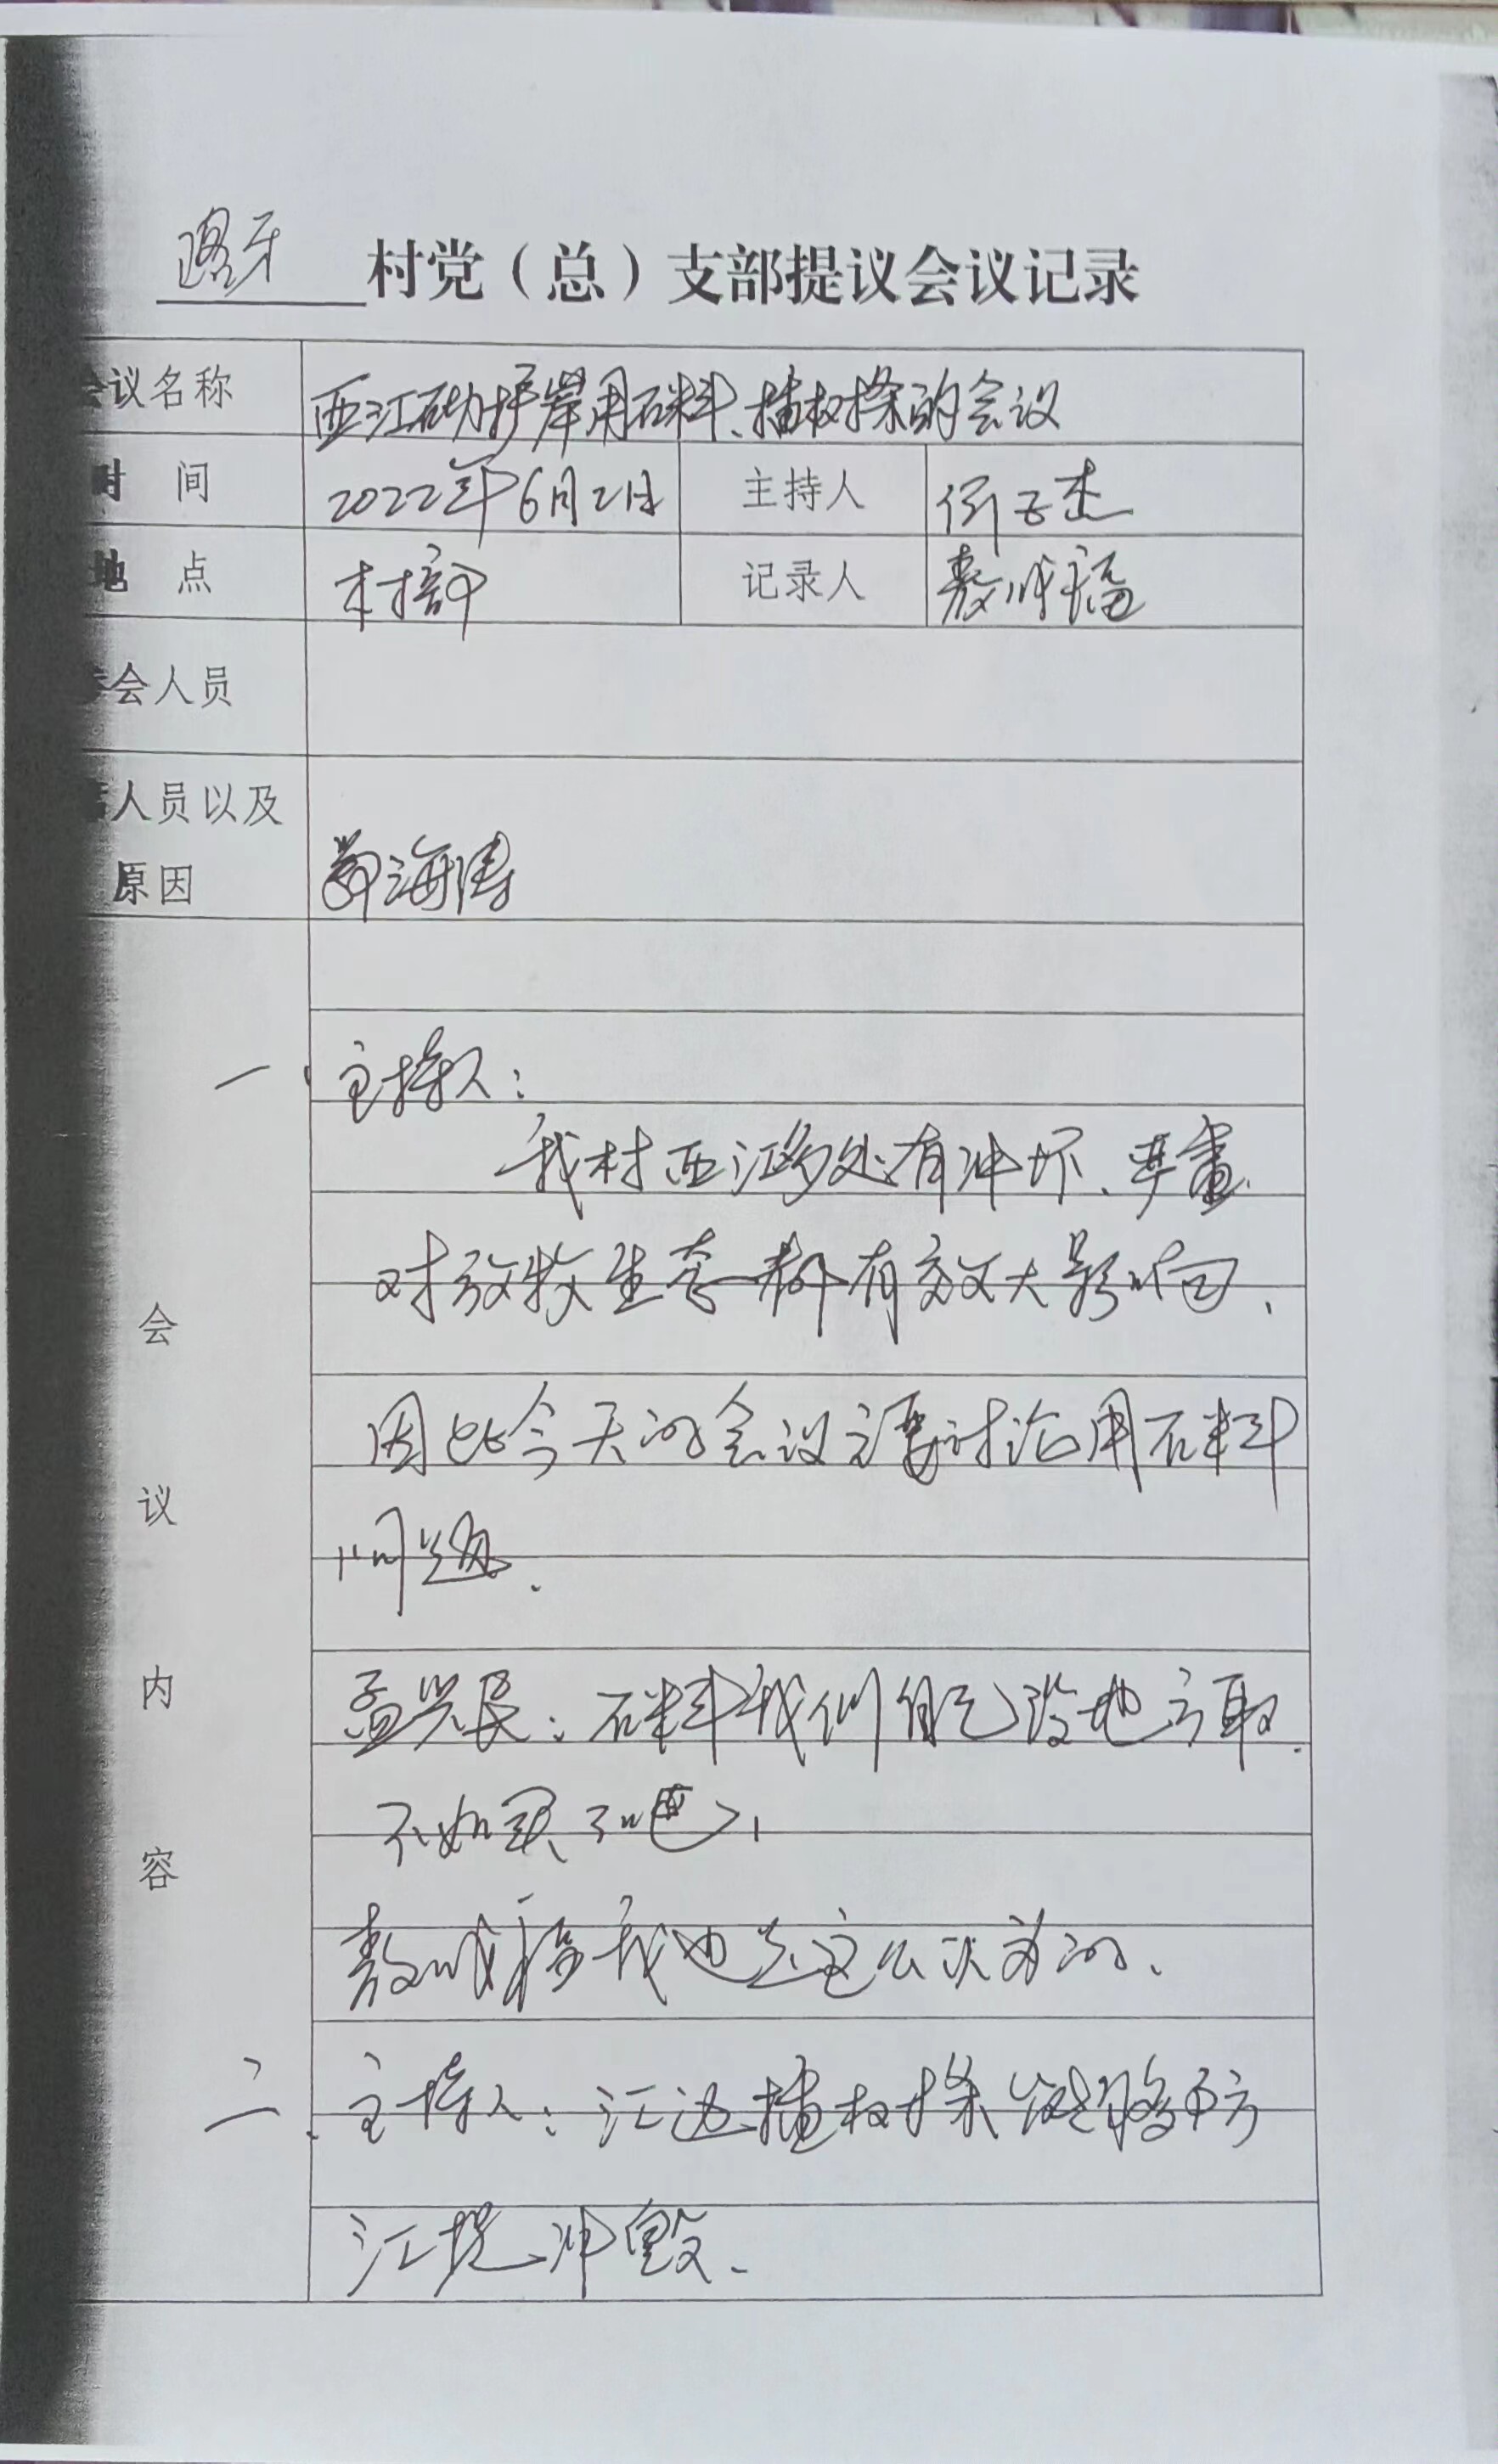 村党（总）支部提议会议记录
会议名称 西江砌护岸用石料、插树条的会议
时间 2022年6月2日 主持人 何玉杰
地点 村部 记录人 敖成福
参会人员
人员以及
原因 海涛
会议内容
一、主持人：
我村西江多处有冲坏、严重、
对放牧生态都有较大影响、
因此今天的会议主要讨论用石料
问题、
孟兴长：石料我们自己没地方取、
不如买了吧、
敖成福 我也是这么认为的、
二、主持人：江边插树条 能够 防
江堤冲毁、